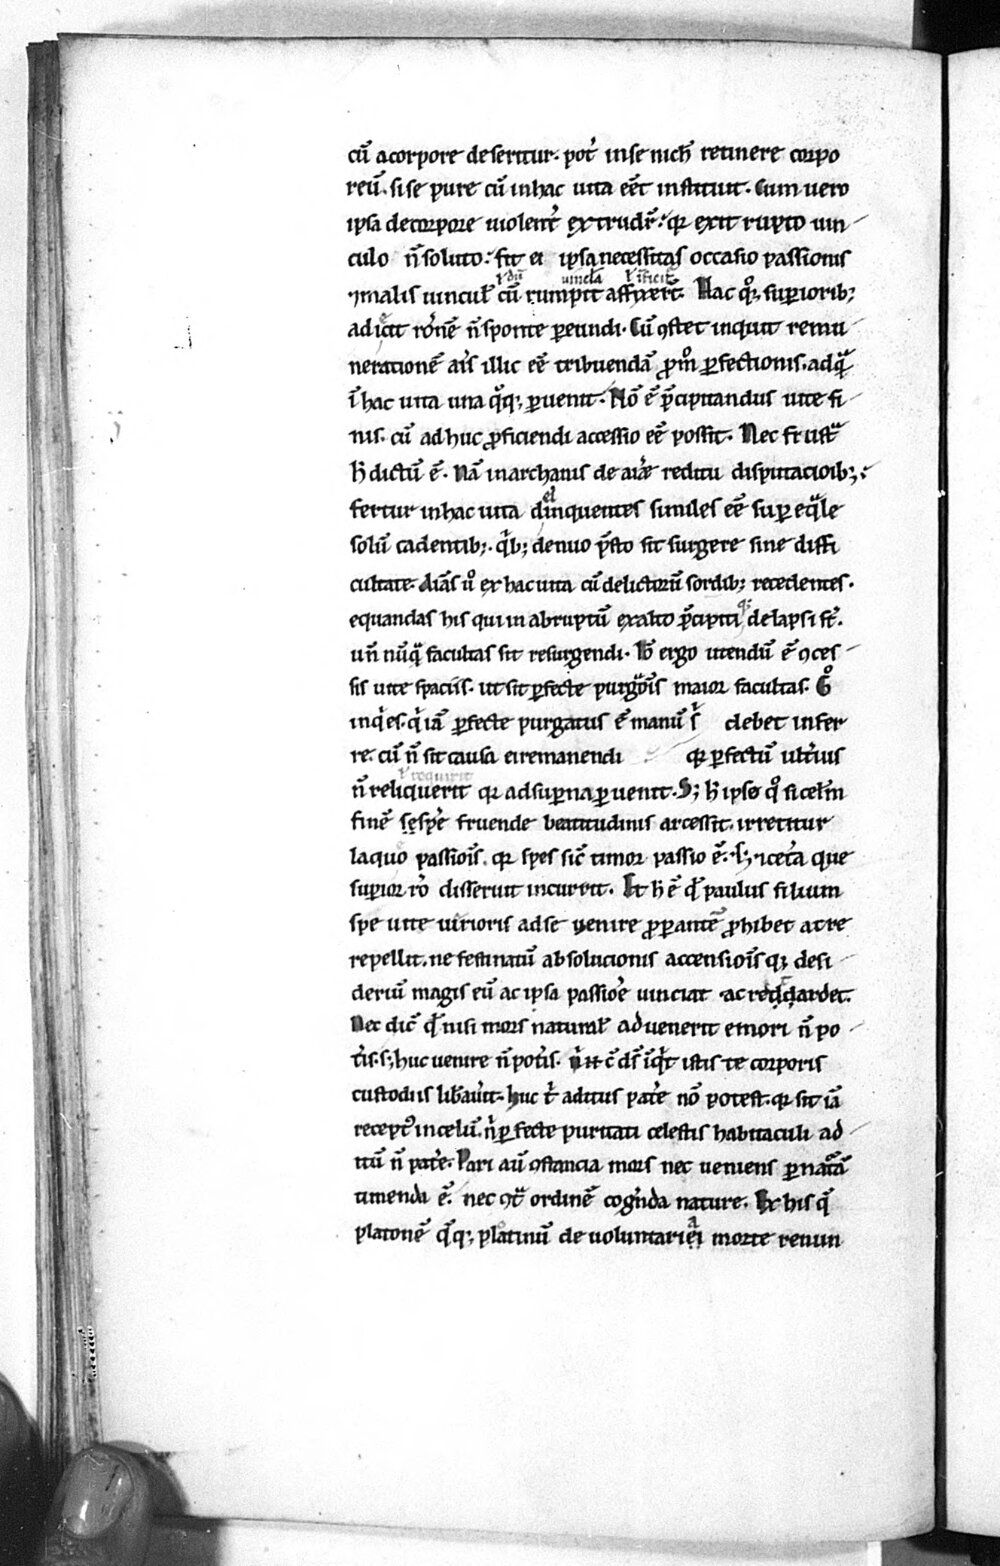 cū a corpore deseritur. pot̄ in se nich̄ retinere corpo
reū. si se pure cū in hac uita eēt instituit. Cum uero
ipsa de corpore uiolent̄ extrudit̄. qr exit rupto uin
culo n̄ soluto. fit ei ipsa necessitas occasio passionis
⁊ malis uinculꝭ cū rumpit affixerit̄. Hac qoꝫ superiorib;
adicit rōnē n̄ sponte ꝑeundi. Cū ꝯstet inquit remu
nerationē aīs illic eē tribuendā ꝓ m̊ ꝑfectionis. ad qͣ
ī hac uita una qͦqꝫ ꝑuenit. Nō ē p̄cipitandus uite fi
nis. cū adhuc ꝓficiendi accessio eē possit. Nec frustͣ
h̄ dictū ē. Nā in archanis de aīae reditu disputacioib;
fertur in hac uita delinquentes similes eē super eqͣle
solū cadentib;. qⁱb; denuo p̄sto sit surgere sine diffi
cultate. Aīas uͦ ex hac uita cū delictorū sordib; recedentes.
equandas his qui in abruptū ex alto p̄cipiti qꝫ delapsi st̄.
un̄ nūqͣ facultas sit resurgendi. Iō ergo utendū ē ꝯces
sis uite spaciis. ut sit ꝑfecte purgͣois maior facultas. Gͦ
inqⁱes. qⁱ iā ꝑfecte purgatus ē manū sⁱ debet infer
re. cū n̄ sit causa ei remanendi qr ꝑfectū ult̄ius
n̄ reliquerit qr ad superna ꝑuenit. S; h̄ ipso qͦ sic el̄m
finē se spe fruende beatitudinis arcessit. irretitur
laqueo passiōis. qr spes sic̄ timor passio ē. s; ⁊ cet̄a que
superior rō disseruit incurrit. Et h̄ ē qd̄ paulus filium
spe uite uirioris ad se uenire ꝓꝑantē ꝓhibet at re
repellit. ne festinatū absolucionis accensiōis qꝫ desi
deriū magis eū ac ipsa passiōe uinciat ac redardet.
Nec dic̄ qd̄ nisi mors natural̄ aduenerit emori n̄ po
t̄is. s; huc uenire n̄ pot̄is. ds̄ īqⁱt istis te corporis
custodiis lib̄auit. huc t̄ aditus pat̄e nō potest. qr sit iā
receptͦ in celū. n̄ ꝑfecte puritati celestis habitaculi ad
itū n̄ pat̄e. Pari aū ꝯstancia mors nec ueniens ꝑ naturā
timenda ē. nec ꝯtͣ ordinē cogenda nature. Ex his qͣ
platonē qͣqꝫ platinū de uoluntaria morte renun